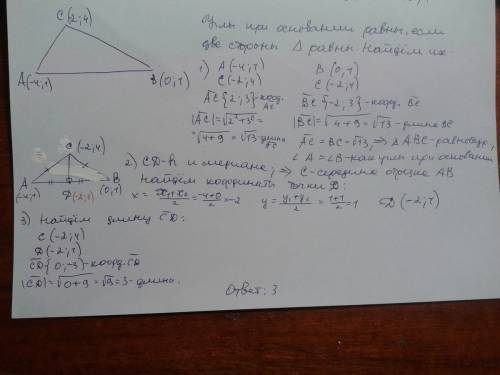 C(-2;4)
A(-4;1)
B(0;1)
Углы при основании равны, если
две стороны Δ равны. Найдём их.
1) A(-4;1) B(0;1)
C(-2;4) C(-2;4)
AC{2;3}-коорд. AC BC{-2;3}-коорд. BC
|AC|=√2²+3²= |BC|=√4+9=√13-длина BC
=√4+9=√13-длина AC AC=BC=√13,⇒ΔABC-равнобедр.,
∠A=∠B-как углы при основании
C(-2;4)
A(-4;1) D(-2;1) B(0;1)
2) CD-h и медиана,⇒ C-середина отрезка AB
Найдём координаты точки D:
x=x₁+x₂/2=-4+0/2=-2 y=y₁+y₂/2=1+1/2=1 D(-2;1)
3) Найдём длину CD:
C(-2;4)
D(-2;1)
CD{0;-3}-коорд. CD
|CD|=√0+9=√9=3-длина.
Ответ: 3